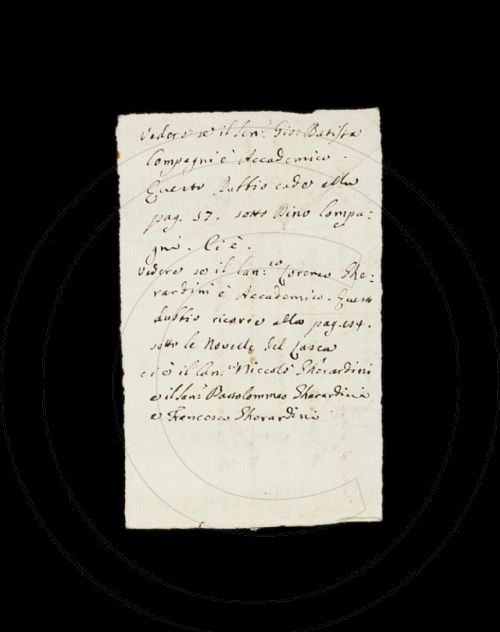 Vedere se il Sen.r Gio: Batista
Compagni è Accademico.
Questo Dubbio cade alla
pag. 37. sotto Dino Compa:
gni. Ci è.
Vedere se il Can:co Lorenzo Ghe:
rardini è Accademico. Questo
dubbio ricorre alla pag.
sotto le Novelle del Lasca
ci è il Niccolò Gherardini
e il Sen.r Bartolommeo Gherardini
e Francesco Gherardini